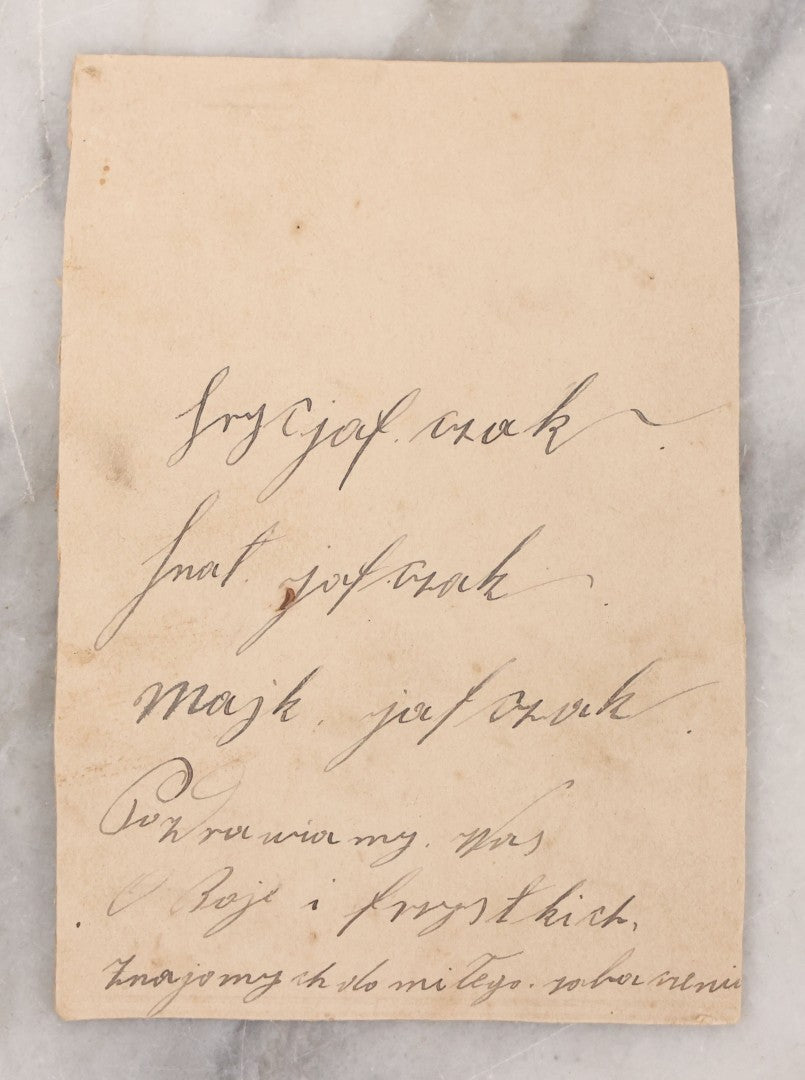 hryc jafczak
hnat. jafczak
Majk. jafczak.
Pozdrawiamy. Was
i fszystkich,
Znajomych do miłego. zobaczeni